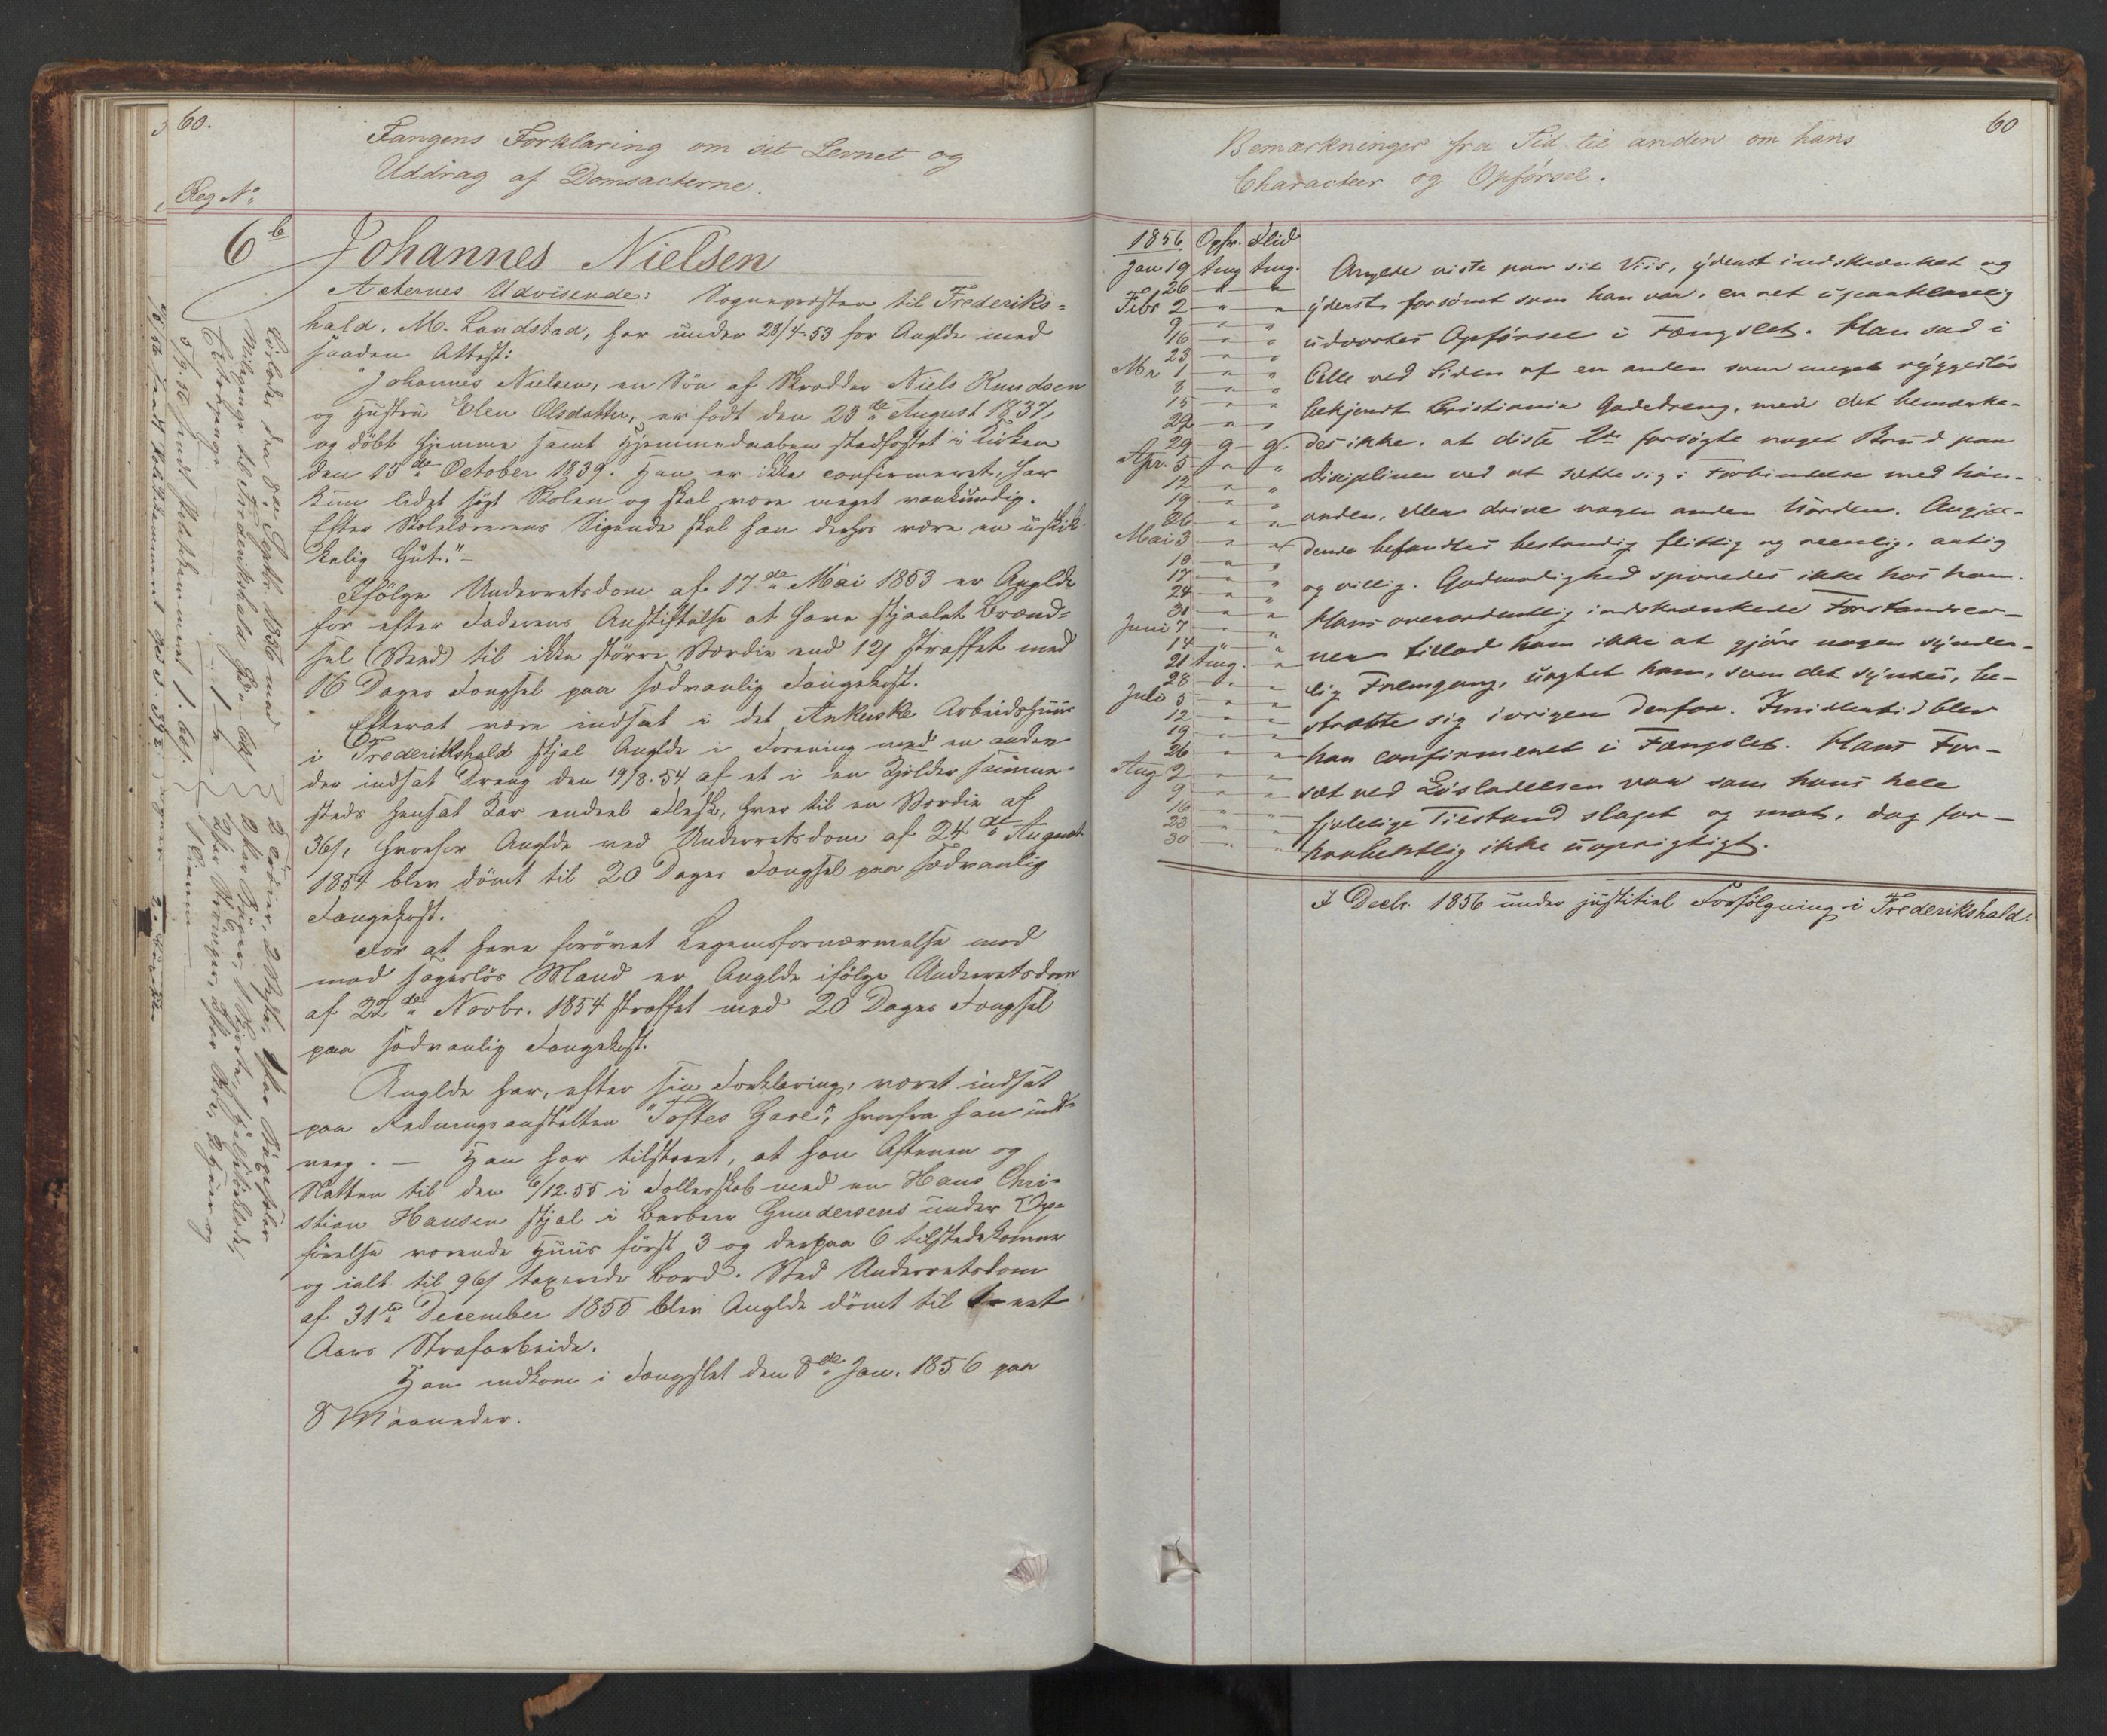 60.
Fangens Forklaring om sit Levnet og
Uddrag af Domsacterne.
Reg No
6b
Johannes Nielsen
Acternes Udvisende: Sognepræsten til Frederiks=
hald, M. Landstad, har under 28/4.53 for Anglde med
saaden Attest:
"Johannes Nielsen, en Søn af Skrædder Niels Knudsen
og Hustru Elen Olsdatter, er født den 23de August 1837,
og döbt hjemme samt Hjemmedaaben stadfæstet i Kirken
den 13de October 1839. Han er ikke confirmeret, har
kun lidet søgt Skolen og skal være meget vankundig.
Efter Skolelærerens Sigende skal han derhos være en uskik-
kelig Gut."-
Ifölge Underretsdom af 17de Mai 1853 er Anglde
for efter Faderens Anstiftelse at have stjaalet Brænd=
sel (Veed) til ikke større Værdie end 12/ straffet med
16 Dages Fængsel paa sædvanlig Fangekost.
Efterat være indsat i det Ankerske Arbeidshuus
i Frederikshald stjal Anglde i Forening med en anden
der indsat Dreng den 19/8.54 af et i en Kjelder samme-
steds hensat Kar endeel Flesk, hver til en Værdie af
36/, hvorfor Anglde ved Underretsdom af 24de August
1854 blev dömt til 20 Dages Fængsel paa sædvanlig
Fangekost.
For at have forövet Legemsfornærmelse mod
mod sagesløs Mand er Anglde ifölge Underretsdom
af 22de Novbr. 1854 straffet med 20 Dages Fængsel
paa sædvanlig Fangekost.
Anglde har, efter sin Forklaring, været indsat
paa Redningsanstalten "Toftes Gave", hvorfra han und-
veeg. - Han har tilstaaet, at han Aftenen og
Natten til den 6/12.55 i Fællesskab med en Hans Chri-
stian Hansen stjal i Barbeer Gundersens under Op=
førelse værende Huus først 3 og derpaa 6 tilstedekomne
og ialt til 96/ taxerede Bord. Ved Underretsdom
af 31te December 1855 blev Anglde dömt til eet
Aars Strafarbeide.
Han indkom i Fængslet den 8de Jan. 1856 paa
8 Maaneder.
Løslades den 8de Septbr. 1856 med
60
Bemærkninger fra Tid til anden om hans
Characteer og Opförsel.
1856 Opfr. Flid
Jan 19 tmg tmg.
26 " "
Febr 2 " "
9 " "
16 " "
23 " "
Mr 1 " "
8 " "
15 " "
22 " "
29 g g.
Apr. 5 " "
12 " "
19 " "
26 " "
Mai 3 " "
10 " "
17 " "
24 " "
31 " "
Juni 7 " "
14 " "
21 tmg. "
28 " "
Juli 5 " "
12 " "
19 " "
26 " "
Aug 2 " "
9 " "
16 " "
23 " "
30 " "
Anglde viste paa sit Viis, yderst indskrænket og
yderst forsömt som han var, en ret upaaklagelig
udvortes Opførsel i Fængslet. Han sad i
Celle ved Siden af en anden som meget ryggeslös
bekjendt Cristiania Gadedreng, med det bemærke-
des ikke, at disse 2de forsøgte noget Brud paa
Disciplinen ved at sætte sig i Forbindelse med hin-
anden, eller drive nogen anden Uorden. Angjæl-
dende befandtes bestandig flittig og reenlig, artig
og villig. Godmodighed sporedes ikke hos ham.
Hans overordentlig indskrænkede Forstandsev-
ner tillod ham ikke at gjöre nogen synder-
lig Fremgang, uagtet han, som det syntes, be-
stræbte sig ivrigen derfor. Imidlertid blev
han confirmeret i Fængslet. Hans For-
sæt ved Löslatelsen var som hans hele
sjelelige Tilstand slapt og mat, dog for-
haabentlig ikke uoprigtigt.
I Decbr. 1856 under justitiel Forfölgning i Frederikshald.